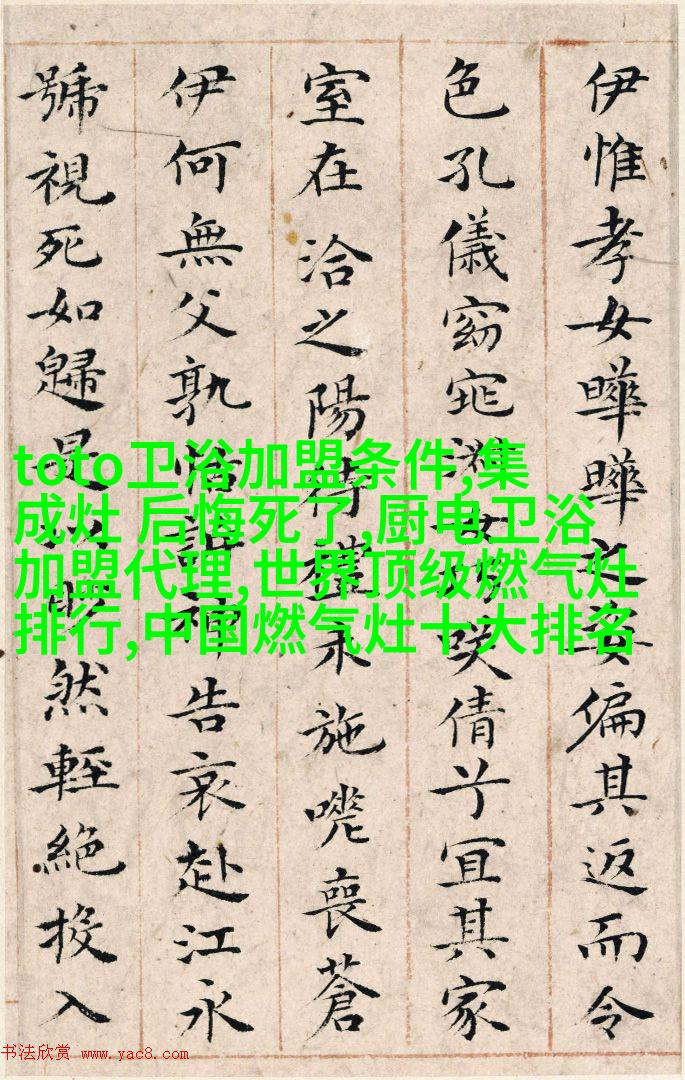 伊惟孝女曄曄之姿偏其返而令
色孔儀窈窕淑女巧咲倩兮宜其家
室在洽之陽待禮未施嗟喪蒼
伊何無父孰怙訴神告哀赴江永
號視死如歸是以眇然輕絕投入
toto卫浴加盟条件,集
成灶 后悔死了,厨电卫浴
加盟代理,世界顶级燃气灶
排行,中国燃气灶十大排名
书法欣赏 www.yac8.com